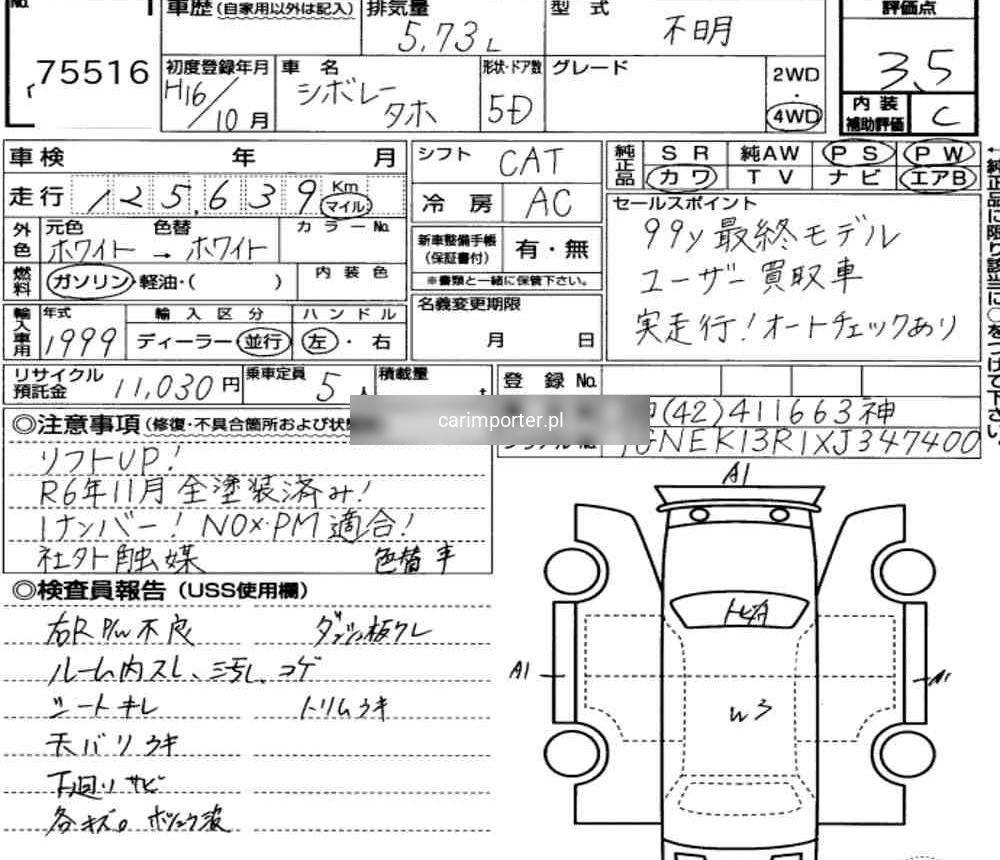 No.
75516
車歴(自家用以外は記入)
排気量
5.73 L
型 式
不明
評価点
3.5
初度登録年月
H16/10月
車 名
シボレー
タホ
形状・ドア数
5D
グレード
2WD
・
4WD
内装
補助評価
C
車検 年 月
シフト CAT
純正品
SR 純AW PS PW
カワ TV ナビ エアB
走行 125,639 Km
マイル
冷房 AC
外色
元色 色替 カラーNo.
ホワイト → ホワイト
新車整備手帳
(保証書付)
有・無
※書類と一緒に保管下さい。
セールスポイント
99y最終モデル
ユーザー買取車
実走行!オートチェックあり
燃料
ガソリン・軽油・( )
内装色
名義変更期限
月 日
輸入車用
年式
1999
輸入区分
ディーラー・並行
ハンドル
左・右
リサイクル
預託金
11,030円
乗車定員
5人
積載量
t
登 録 No.
(42)411663神
1GNEK13R1XJ347400
carimporter.pl
◎注意事項(修復・不具合箇所および状
リフトUP!
R6年11月全塗装済み!
1ナンバー!NOx・PM適合!
社外触媒 色替車
◎検査員報告(USS使用欄)
右R P/w不良 ダッシュ板ワレ
ルーム内スレ、汚れ、コゲ
シートキレ トリムウキ
天バリウキ
下廻りサビ
各キズ。
A1
A1
W3
←純正品に限り該当に○をつけて下さい。